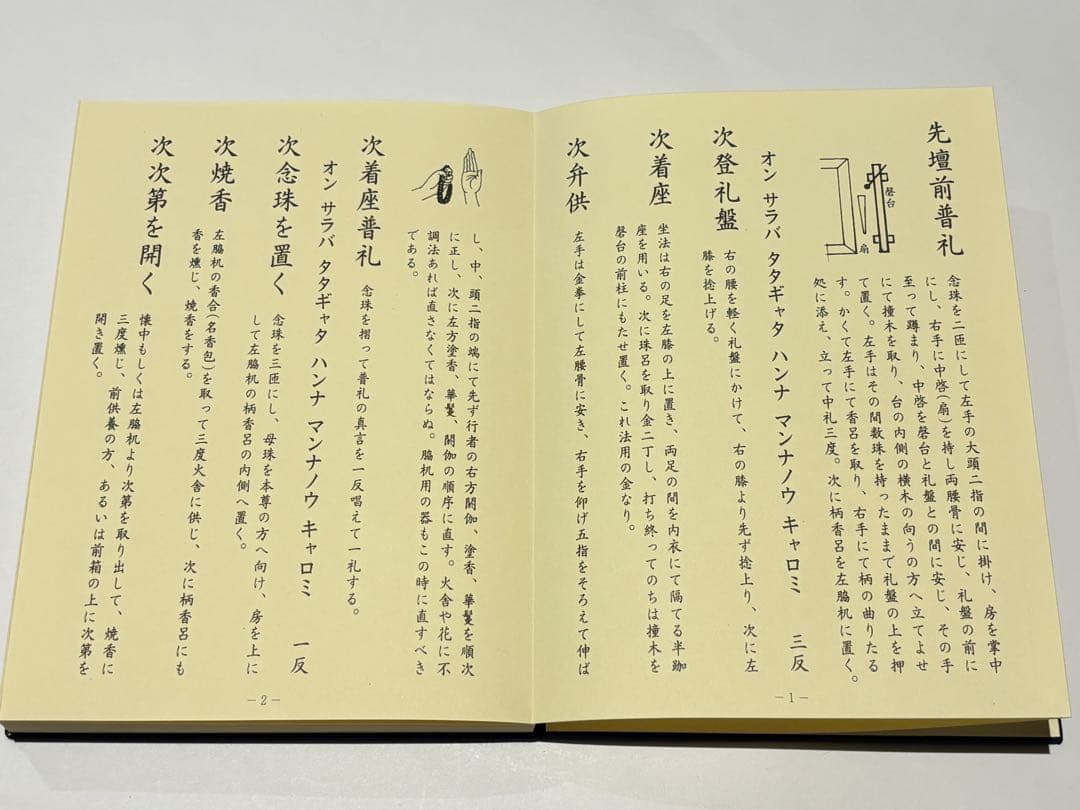 先壇前普礼
念珠を二匝にして左手の大頭二指の間に掛け、房を掌中
にし、右手に中啓(扇)を持し両腰骨に安じ、礼盤の前に
至って蹲まり、中啓を磬台と礼盤との間に安じ、その手
にて撞木を取り、台の内側の横木の向うの方へ立てよせ
て置く。左手はその間数珠を持ったままで礼盤の上を押
す。かくて左手にて香呂を取り、右手にて柄の曲りたる
処に添え、立って中礼三度。次に柄香呂を左脇机に置く。
磬台
扇
オン サラバ タタギャタ ハンナ マンナノウ キャロミ 三反
次登礼盤
右の腰を軽く礼盤にかけて、右の膝より先ず捻上り、次に左
膝を捻上げる。
次着座
坐法は右の足を左膝の上に置き、両足の間を内衣にて隔てる半跏
座を用いる。次に珠呂を取り金二丁し、打ち終ってのちは撞木を
磬台の前柱にもたせ置く。これ法用の金なり。
次弁供
左手は金拳にして左腰骨に安き、右手を仰げ五指をそろえて伸ば
－1－
し、中、頭二指の端にて先ず行者の右方閼伽、塗香、華鬘を順次
に正し、次に左方塗香、華鬘、閼伽の順序に直す。火舎や花に不
調法あれば直さなくてはならぬ。脇机用の器もこの時に直すべき
である。
次着座普礼
念珠を摺って普礼の真言を一反唱えて一礼する。
オン サラバ タタギャタ ハンナ マンナノウ キャロミ 一反
次念珠を置く
念珠を三匝にし、母珠を本尊の方へ向け、房を上に
して左脇机の柄香呂の内側へ置く。
次焼香
左脇机の香合(名香包)を取って三度火舎に供じ、次に柄香呂にも
香を燻じ、焼香をする。
次次第を開く
懐中もしくは左脇机より次第を取り出して、焼香に
三度燻じ、前供養の方、あるいは前箱の上に次第を
開き置く。
－2－